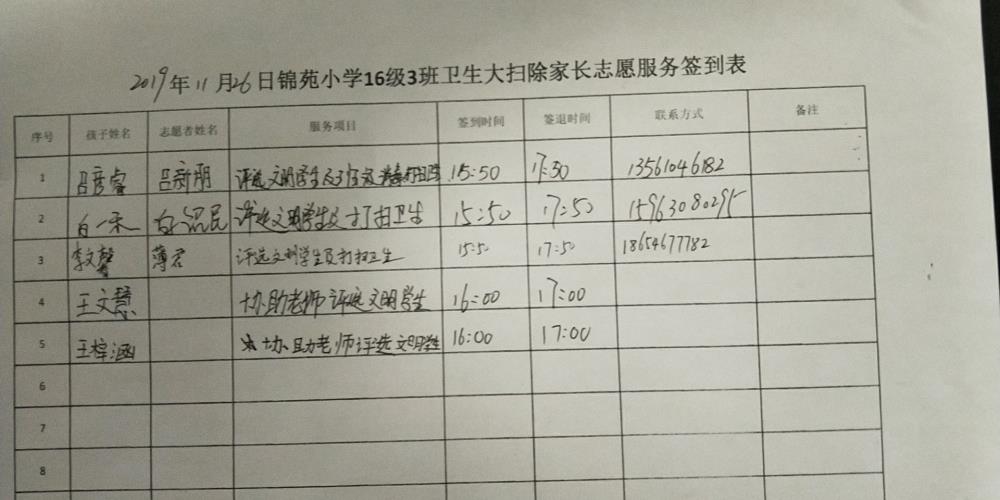 2019年11月26日锦苑小学16级3班卫生大扫除家长志愿服务签到表
序号 孩子姓名 志愿者姓名 服务项目 签到时间 签退时间 联系方式 备注
1 吕彦睿 吕新朋 评选文明学生及 15:50 17:50 13561046182
2 白一禾 民 评选文明学生及打扫卫生 15:50 17:50 15963080295
3 李文馨 薄君 评选文明学生及打扫卫生 15:50 17:50 18654677782
4 王文慧 协助老师评选文明学生 16:00 17:00
5 王梓涵 协助老师评选文明学生 16:00 17:00
6
7
8